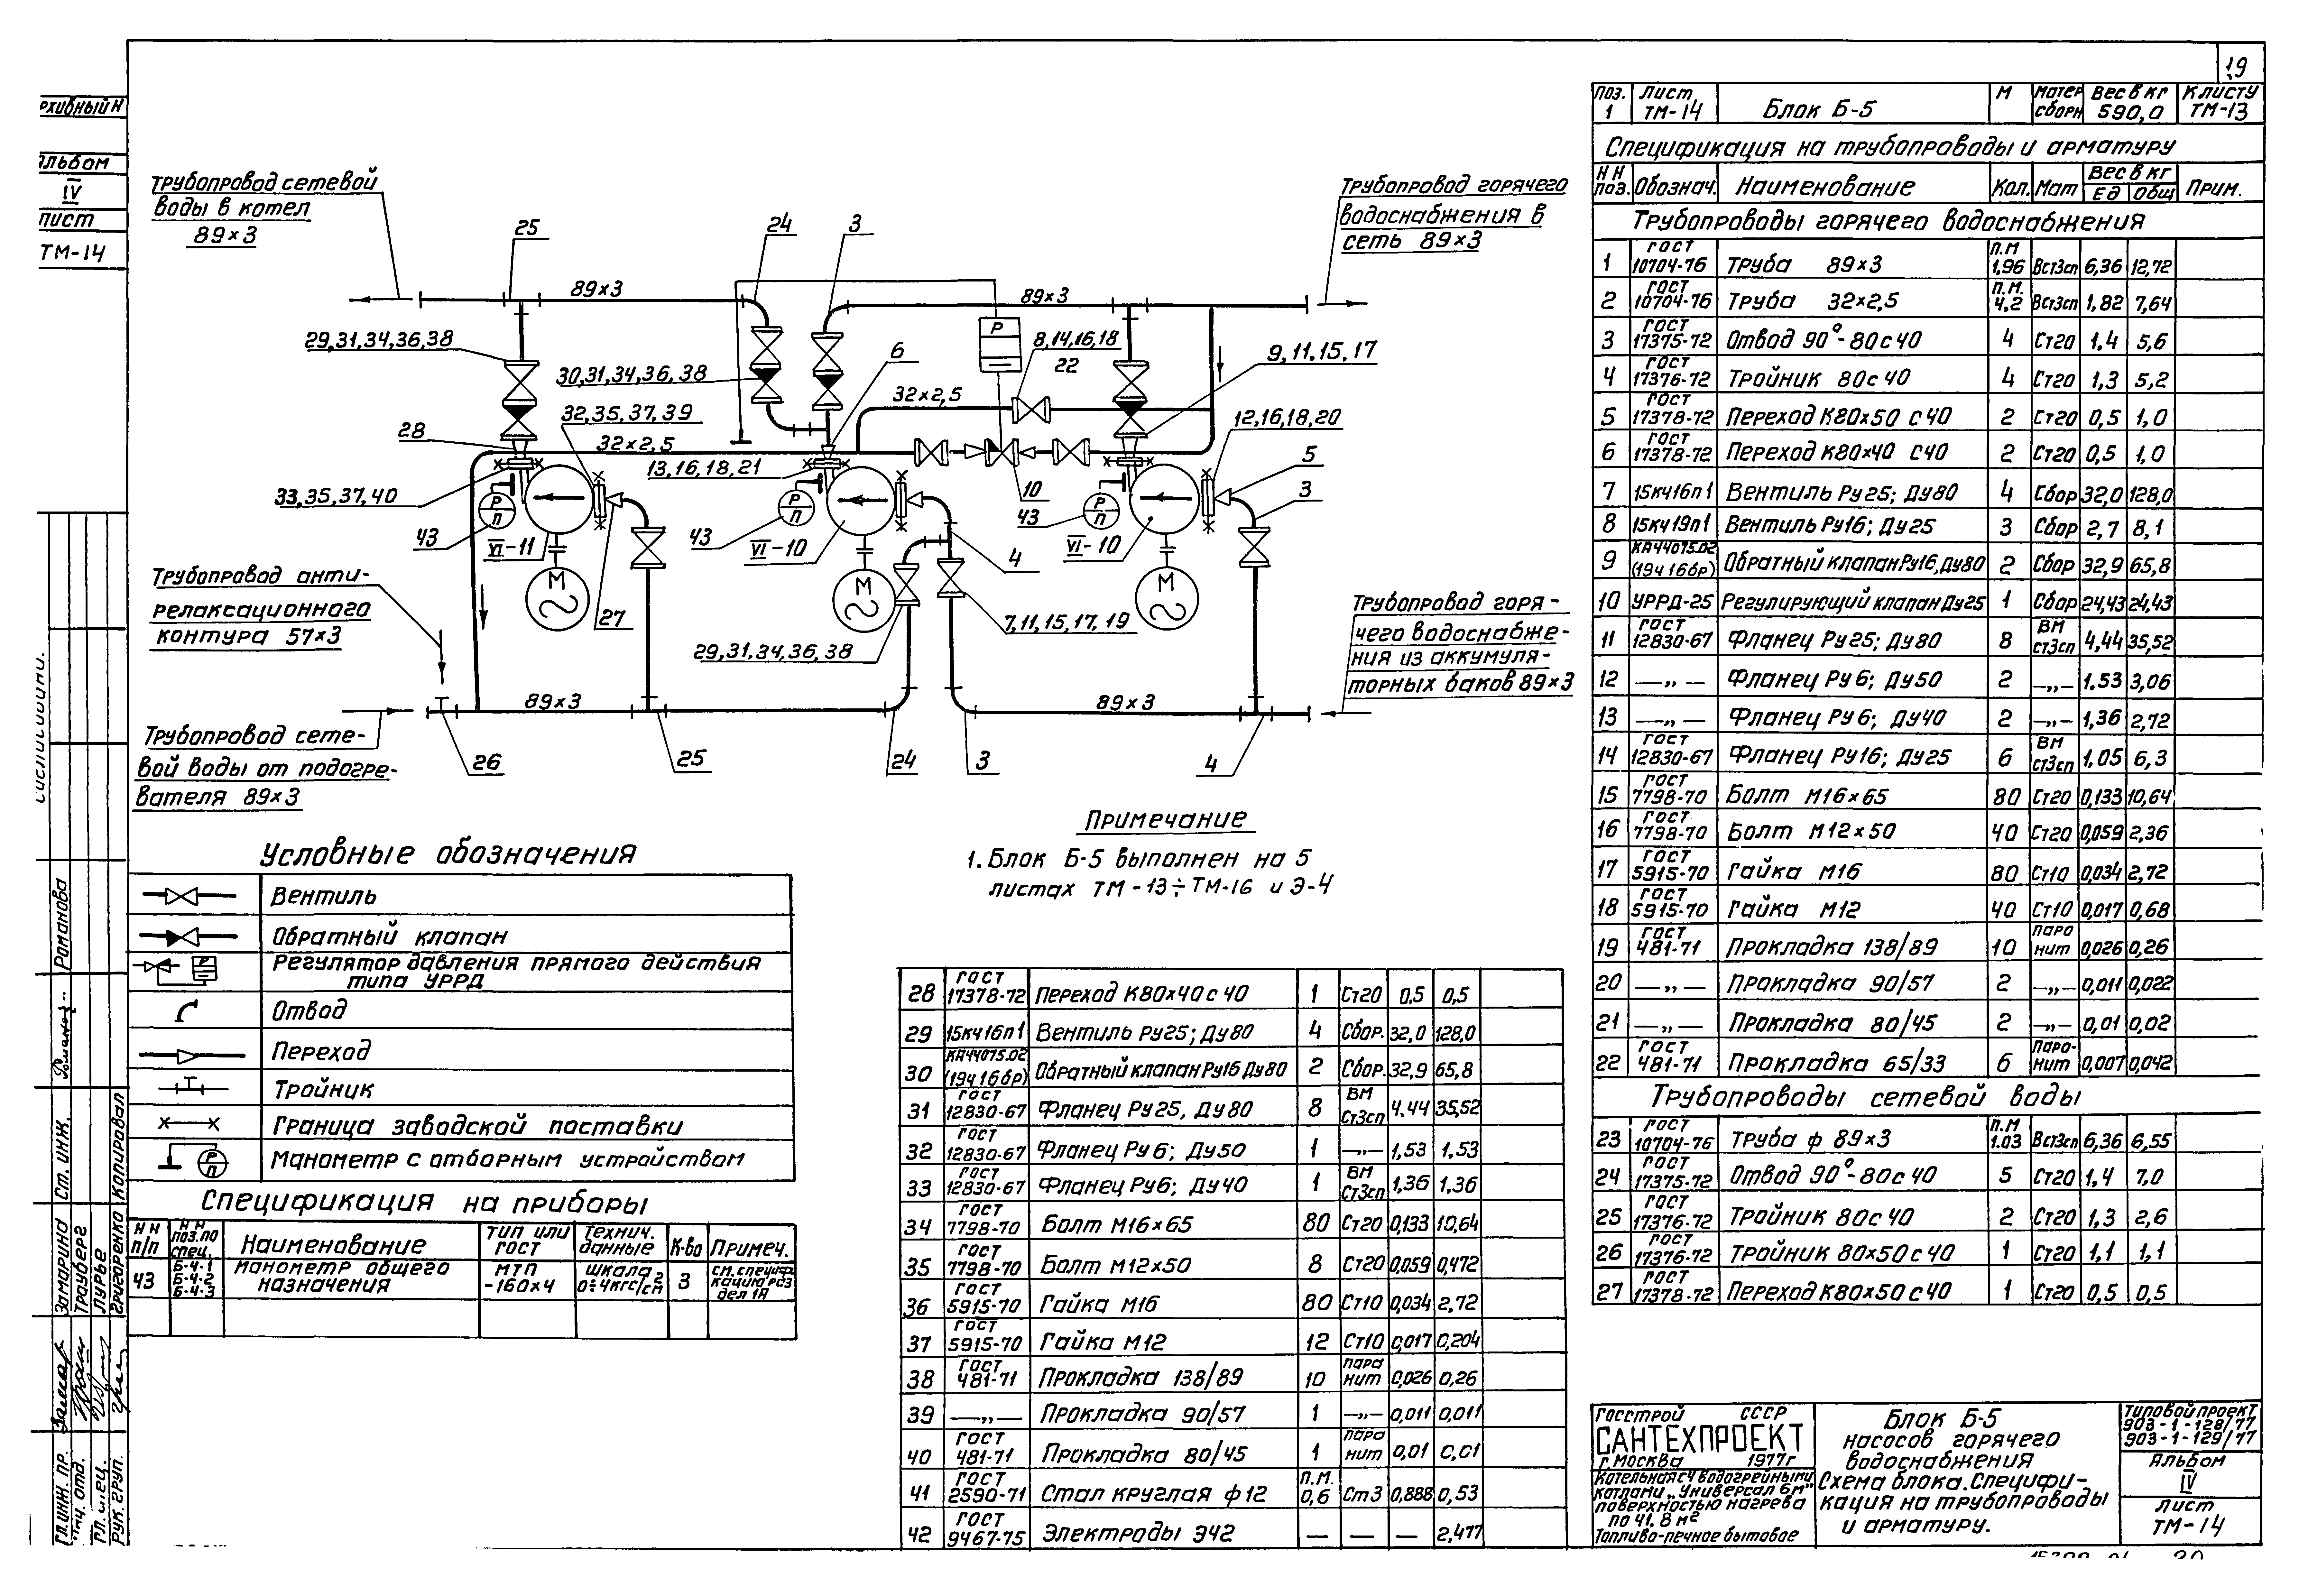 19
рхивный Н
Альбом
IV
лист
ТМ-14
Трубопровод сетевой
воды в котел
89×3
25
24
3
Трубопровод горячего
водоснабжения в
сеть 89×3
89×3
89×3
29,31,34,36,38
30,31,34,36,38
6
8,14,16,18
22
9,11,15,17
32×2,5
32,35,37,39
12,16,18,20
28
32×2,5
13,16,18,21
5
3
33,35,37,40
10
43
43
43
VI-11
VI-10
VI-10
4
Р
Р
П
Р
П
Р
П
М
М
М
Трубопровод анти-
релаксационного
контура 57×3
27
7,11,15,17,19
29,31,34,36,38
Трубопровод горя-
чего водоснабже-
ния из аккумуля-
торных баков 89×3
89×3
89×3
Трубопровод сете-
вой воды от подогре-
вателя 89×3
26
25
24
3
4
Примечание
1. Блок Б-5 выполнен на 5
листах ТМ-13÷ТМ-16 и Э-4
Условные обозначения
Вентиль
Обратный клапан
Регулятор давления прямого действия
типа УРРД
Отвод
Переход
Тройник
Граница заводской поставки
Манометр с отборным устройством
Спецификация на приборы
НН п/п НН поз.по спец. Наименование Тип или ГОСТ Технич. данные К-во Примеч.
43 Б-4-1 Б-4-2 Б-4-3 Манометр общего назначения МТП -160×4 Шкала 0÷4кгс/см2 3 см. специфи кацию раз дел 1А
28 ГОСТ 17378-72 Переход К80×40 с 40 1 Ст20 0,5 0,5
29 15кч16п1 Вентиль Ру25; Ду80 4 Сбор. 32,0 128,0
30 КА44075.02 (19ч16бр) Обратный клапан Ру16 Ду80 2 Сбор. 32,9 65,8
31 ГОСТ 12830-67 Фланец Ру25, Ду80 8 ВМ Ст3сп 4.44 35,52
32 ГОСТ 12830-67 Фланец Ру6; Ду50 1 —„— 1,53 1,53
33 ГОСТ 12830-67 Фланец Ру6; Ду40 1 ВМ Ст3сп 1,36 1,36
34 ГОСТ 7798-70 Болт М16×65 80 Ст20 0,133 10,64
35 ГОСТ 7798-70 Болт М12×50 8 Ст20 0,059 0,472
36 ГОСТ 5915-70 Гайка М16 80 Ст10 0,034 2,72
37 ГОСТ 5915-70 Гайка М12 12 Ст10 0,017 0,204
38 ГОСТ 481-71 Прокладка 138/89 10 паронит 0,026 0,26
39 —„— Прокладка 90/57 1 —„— 0,011 0,011
40 ГОСТ 481-71 Прокладка 80/45 1 паронит 0,01 0,01
41 ГОСТ 2590-71 Стал круглая ф12 П.М. 0,6 Ст3 0,888 0,53
42 ГОСТ 9467-75 Электроды Э42 — — — 2,477
Поз. 1 Лист ТМ-14 Блок Б-5 М Матер сборн Вес в кг 590,0 К листу ТМ-13
Спецификация на трубопроводы и арматуру
НН поз. Обознач. Наименование Кол. Мат Вес в кг Ед Общ Прим.
Трубопроводы горячего водоснабжения
1 ГОСТ 10704-76 Труба 89×3 П.М 1,96 Вст3сп 6,36 12,72
2 ГОСТ 10704-76 Труба 32×2,5 П.М. 4,2 Вст3сп 1,82 7,64
3 ГОСТ 17375-72 Отвод 90°-80с40 4 Ст20 1.4 5,6
4 ГОСТ 17376-72 Тройник 80с40 4 Ст20 1,3 5,2
5 ГОСТ 17378-72 Переход К80×50 с40 2 Ст20 0,5 1,0
6 ГОСТ 17378-72 Переход К80×40 с40 2 Ст20 0,5 1,0
7 15кч16п1 Вентиль Ру25; Ду80 4 Сбор 32,0 128,0
8 15кч19п1 Вентиль Ру16; Ду25 3 Сбор 2,7 8,1
9 КА44075.02 (19ч16бр) Обратный клапан Ру16, Ду80 2 Сбор 32,9 65,8
10 УРРД-25 Регулирующий клапан Ду25 1 Сбор 24,43 24,43
11 ГОСТ 12830-67 Фланец Ру25; Ду80 8 ВМ ст3сп 4,44 35,52
12 —„— Фланец Ру6; Ду50 2 —„— 1.53 3,06
13 —„— Фланец Ру6; Ду40 2 —„— 1,36 2,72
14 ГОСТ 12830-67 Фланец Ру16; Ду25 6 ВМ ст3сп 1,05 6,3
15 ГОСТ 7798-70 Болт М16×65 80 Ст20 0,133 10,64
16 ГОСТ 7798-70 Болт М12×50 40 Ст20 0,059 2,36
17 ГОСТ 5915-70 Гайка М16 80 Ст10 0,034 2,72
18 ГОСТ 5915-70 Гайка М12 40 Ст10 0,017 0,68
19 ГОСТ 481-71 Прокладка 138/89 10 паронит 0,026 0,26
20 —„— Прокладка 90/57 2 —„— 0,011 0,022
21 —„— Прокладка 80/45 2 —„— 0,01 0,02
22 ГОСТ 481-71 Прокладка 65/33 6 Паро-нит 0,007 0,042
Трубопроводы сетевой воды
23 ГОСТ 10704-76 Труба ф 89×3 П.М 1.03 Вст3сп 6,36 6,55
24 ГОСТ 17375-72 Отвод 90°-80с40 5 Ст20 1,4 7,0
25 ГОСТ 17376-72 Тройник 80с40 2 Ст20 1,3 2,6
26 ГОСТ 17376-72 Тройник 80×50 с40 1 Ст20 1,1 1,1
27 ГОСТ 17378-72 Переход К80×50 с40 1 Ст20 0,5 0,5
Госстрой СССР
САНТЕХПРОЕКТ
г. Москва 1977г
Котельная с 4 водогрейными
котлами „Универсал 6м"
поверхностью нагрева
по 41,8 м2
Топливо-печное бытовое
Блок Б-5
насосов горячего
водоснабжения
Схема блока. Специфи-
кация на трубопроводы
и арматуру.
Типовой проект
903-1-128/77
903-1-129/77
Альбом
IV
Лист
ТМ-14
Гл. инж. пр. Замарина
нач. отд. Трауберг
Лурье
Рук. груп. Григоренко
Ст. инж. Романова
Копировал